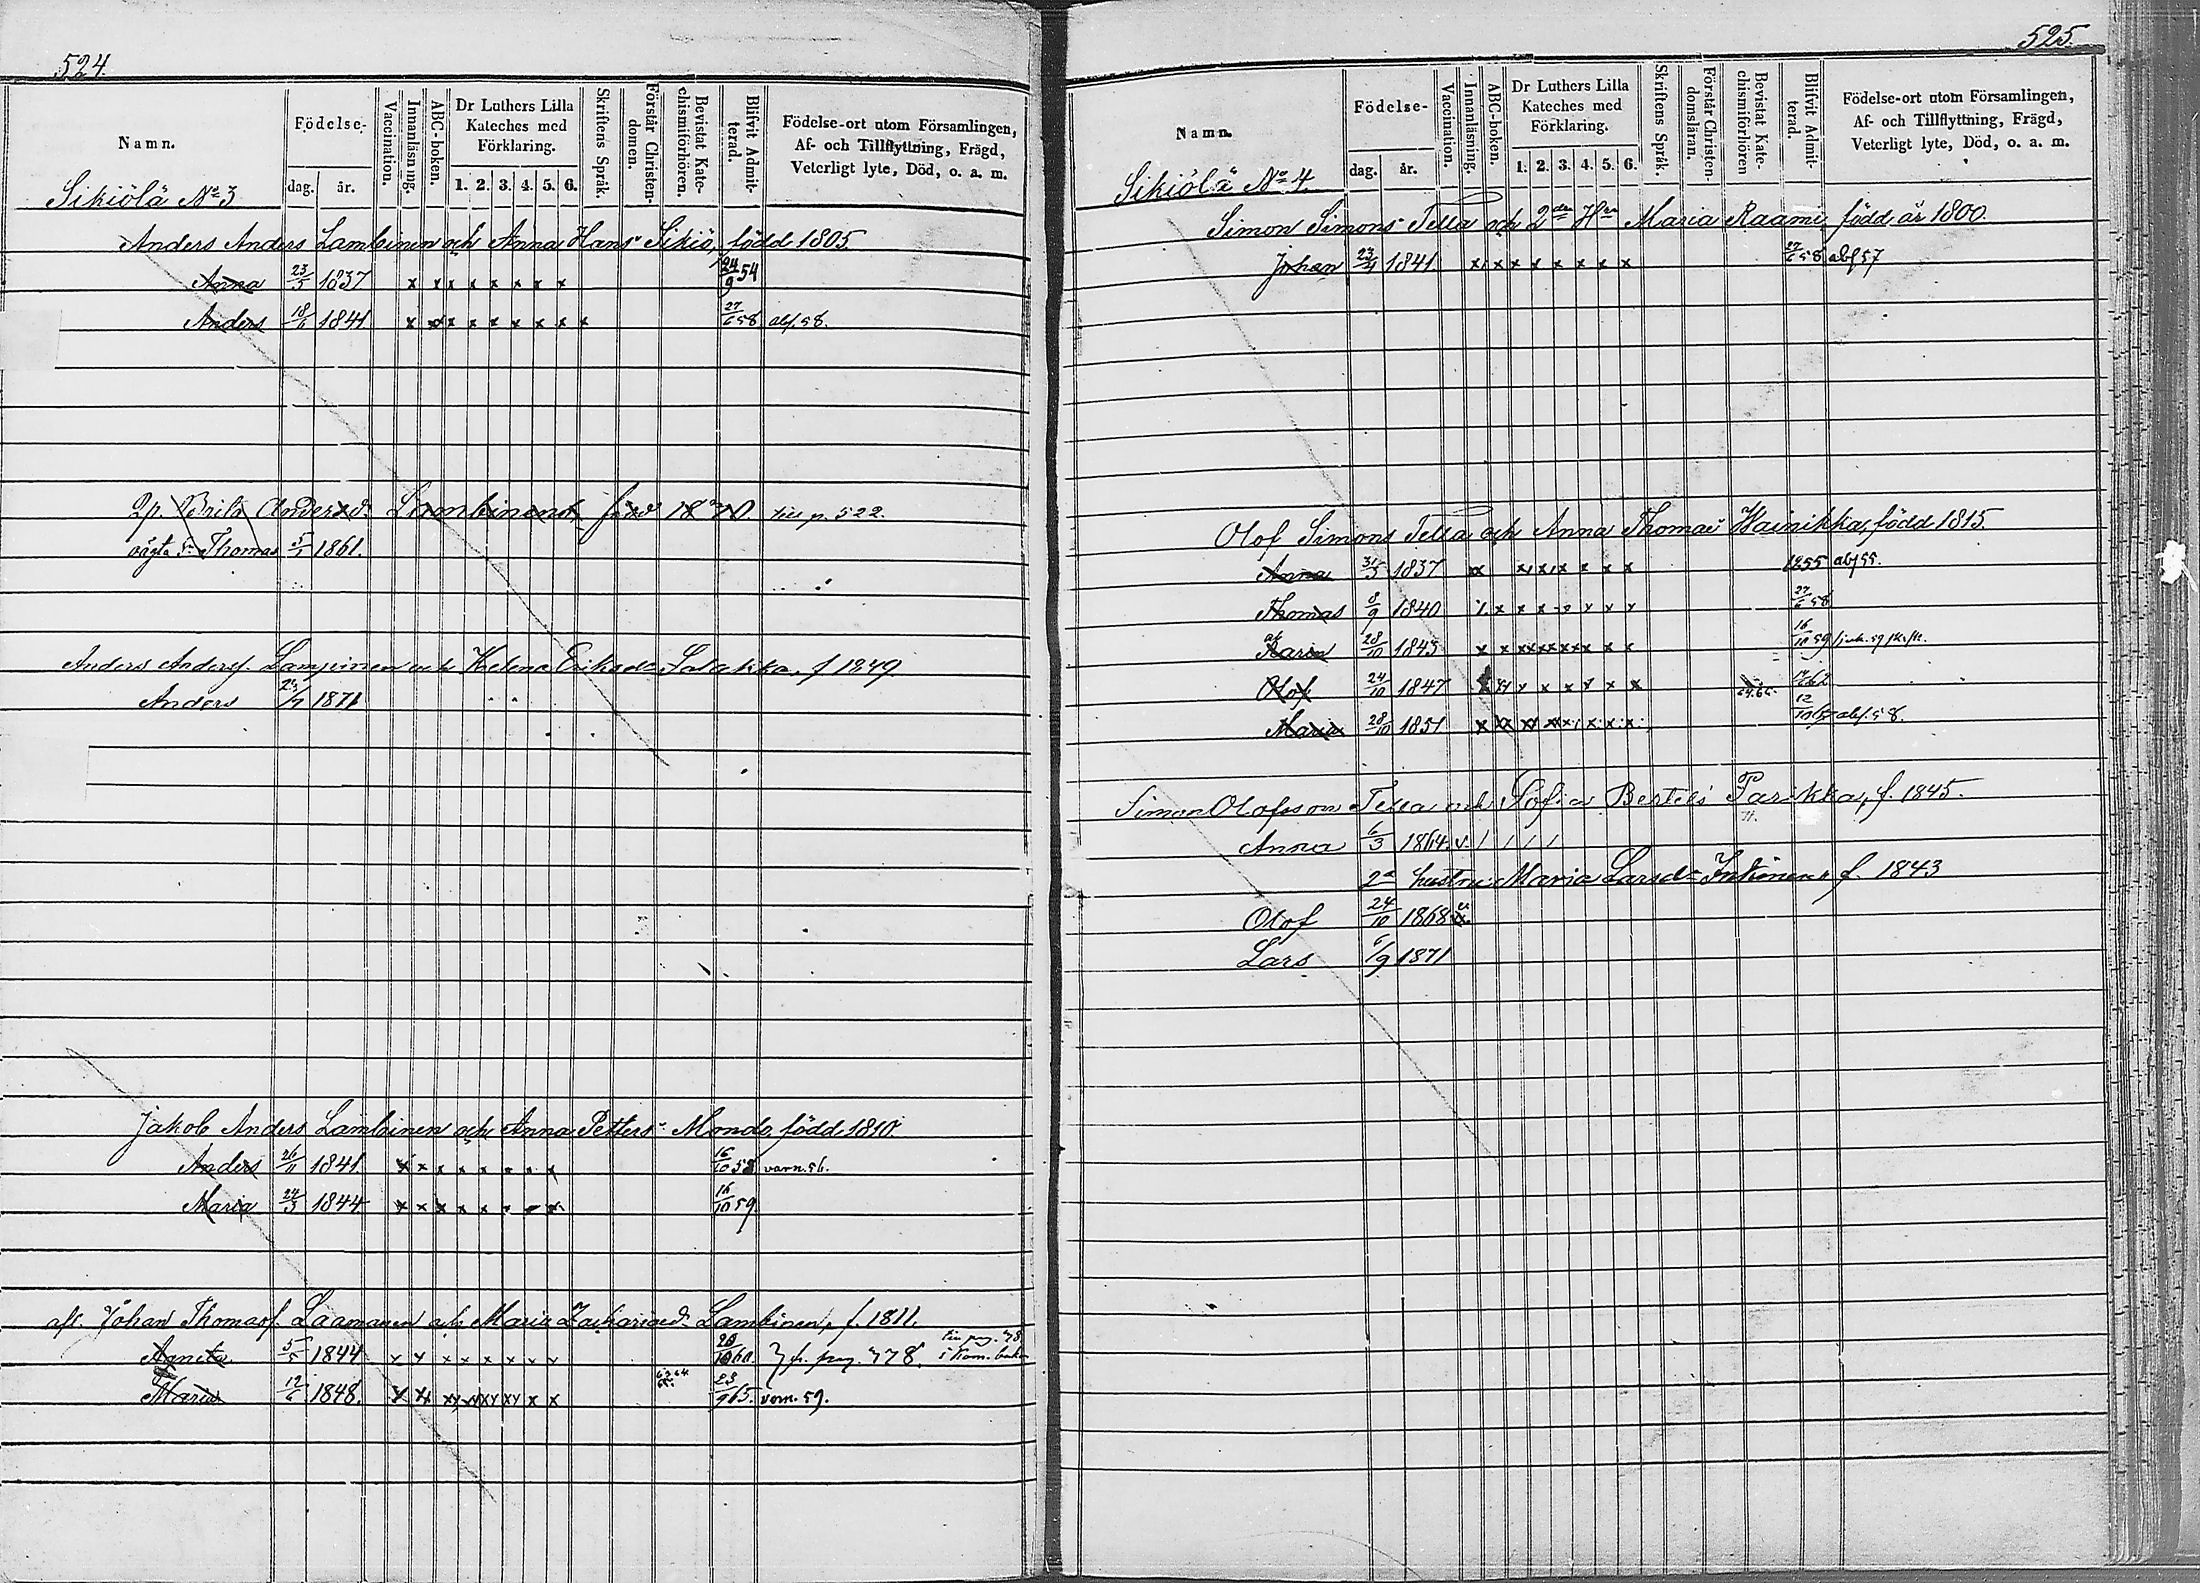 524.
Namn.
Födelse-
dag. år.
Vaccination.
Innanläsning.
ABC-boken.
Dr Luthers Lilla
Kateches med
Förklaring.
1. 2. 3. 4. 5. 6.
Skriftens Språk.
Förstår Christen-
domen.
Bevistat Kate-
chismiförhören.
Blifvit Admit-
terad.
Födelse-ort utom Församlingen,
Af- och Tillflyttning, Frägd,
Veterligt lyte, Död, o. a. m.
Sikiölä No 3
Anders Anders Lambinen och Anna Hans Sikiö, född 1805
Anna 23/5 1837 x x x x x x x x 24/9 54
Anders 18/6 1841 x x x x x x x x x 27/6 58 abs. 58.
Brita Andersd: Lambinens, född till p. 522.
Thomas 5/1 1861.
Anders Andersf. Lampinen och Helena Eriksdr f 1849
Anders 1871
Jakob Anders Lambinen och Anna Petters Mondo, född 1810.
Anders 26/11 1841 x x x x x x x x 16/10 58 varn. 56.
Maria 24/3 1844 x x x x x x x x 16/10 59
Johan Thomasf. Laamanen och Maria Zachariaed: Lambinen, f. 1811.
Agneta 5/5 1844 x x x x x x x x 60. fr. pag. 778.
Maria 12/6 1848. x x x x x x x x 23/9 65. varn. 59.
525.
Namn.
Födelse-
dag. år.
Vaccination.
Innanläsning.
ABC-boken.
Dr Luthers Lilla
Kateches med
Förklaring.
1. 2. 3. 4. 5. 6.
Skriftens Språk.
Förstår Christen-
domsläran.
Bevistat Kate-
chismiförhören
Blifvit Admit-
terad.
Födelse-ort utom Församlingen,
Af- och Tillflyttning, Frägd,
Veterligt lyte, Död, o. a. m.
Sikiölä No 4.
Simon Simons Tella och 2dra Hru Maria Raami, född år 1800.
Johan 23/4 1841. x x x x x x x x 27/6 58 abs 57
Olof Simons Tella och Anna Thomas Hainikka, född 1815.
Anna 31/5 1837 x x x x x x x 1855 abs 55.
Thomas 8/9 1840 x x x x x x x 27/6 58
Karin 28/10 1843 x x x x x x x x 16/10 59
Olof 24/10 1847 x x x x x x x x 62
Maria 28/10 1851 x x x x x x x x 12/10 abs. 58.
Simon Olofsson Tella och Sofia Bertels Parikka, f. 1845.
Anna 6/3 1864. v. / / / /
2a hustru: Maria Larsdr f. 1843
Olof 24/10 1868
Lars 6/9 1871